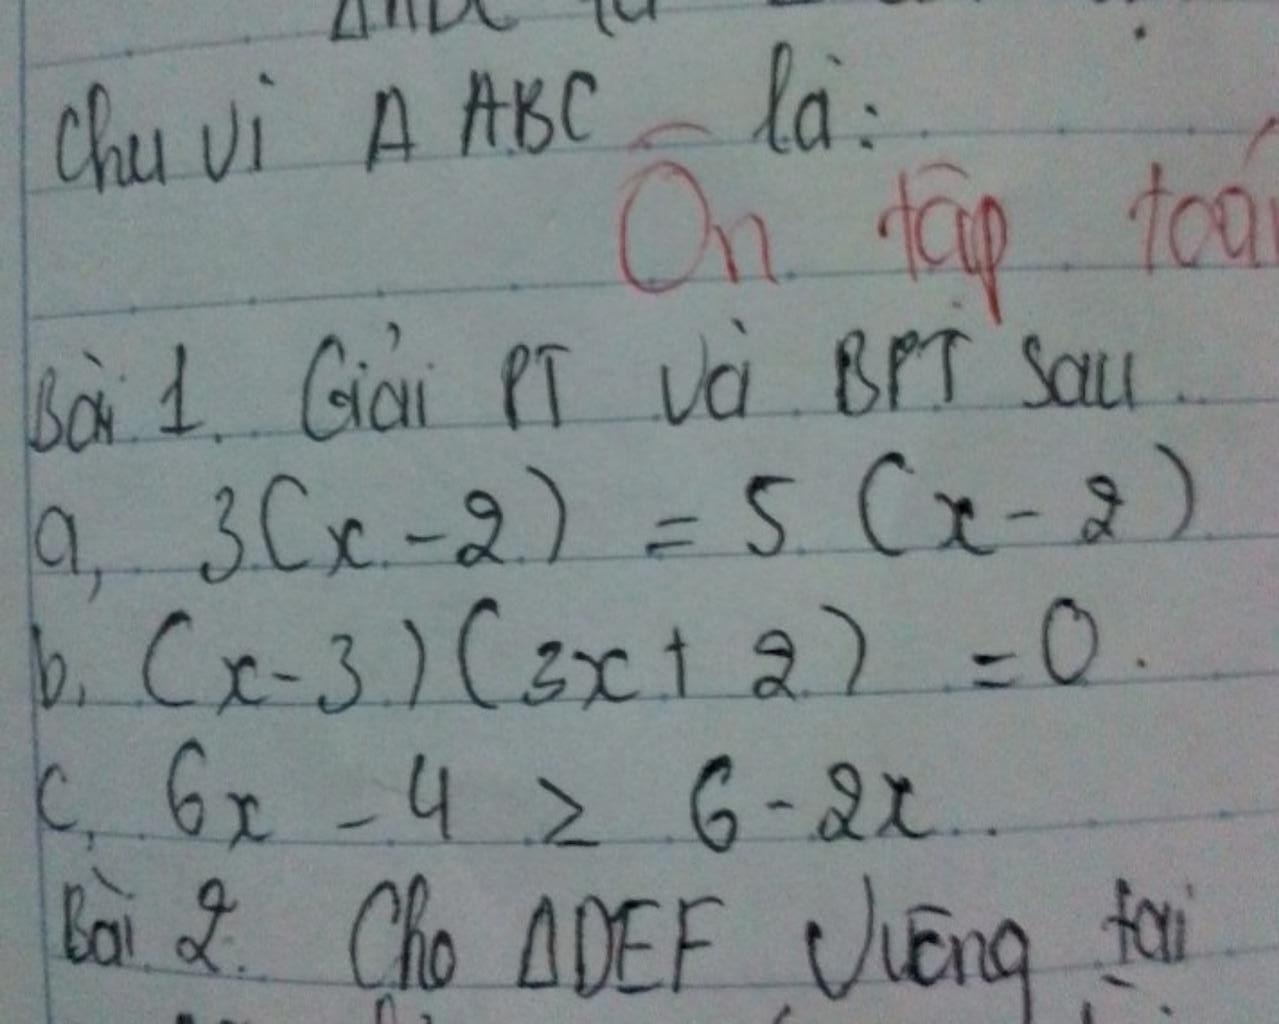 Chu vi Δ ABC là:
Ôn tập toá
Bài 1. Giải PT và BPT sau
a, 3(x-2) = 5 (x-2)
b, (x-3)(3x+2) = 0.
c, 6x - 4 ≥ 6 - 2x
Bài 2. Cho ΔDEF vuông tại